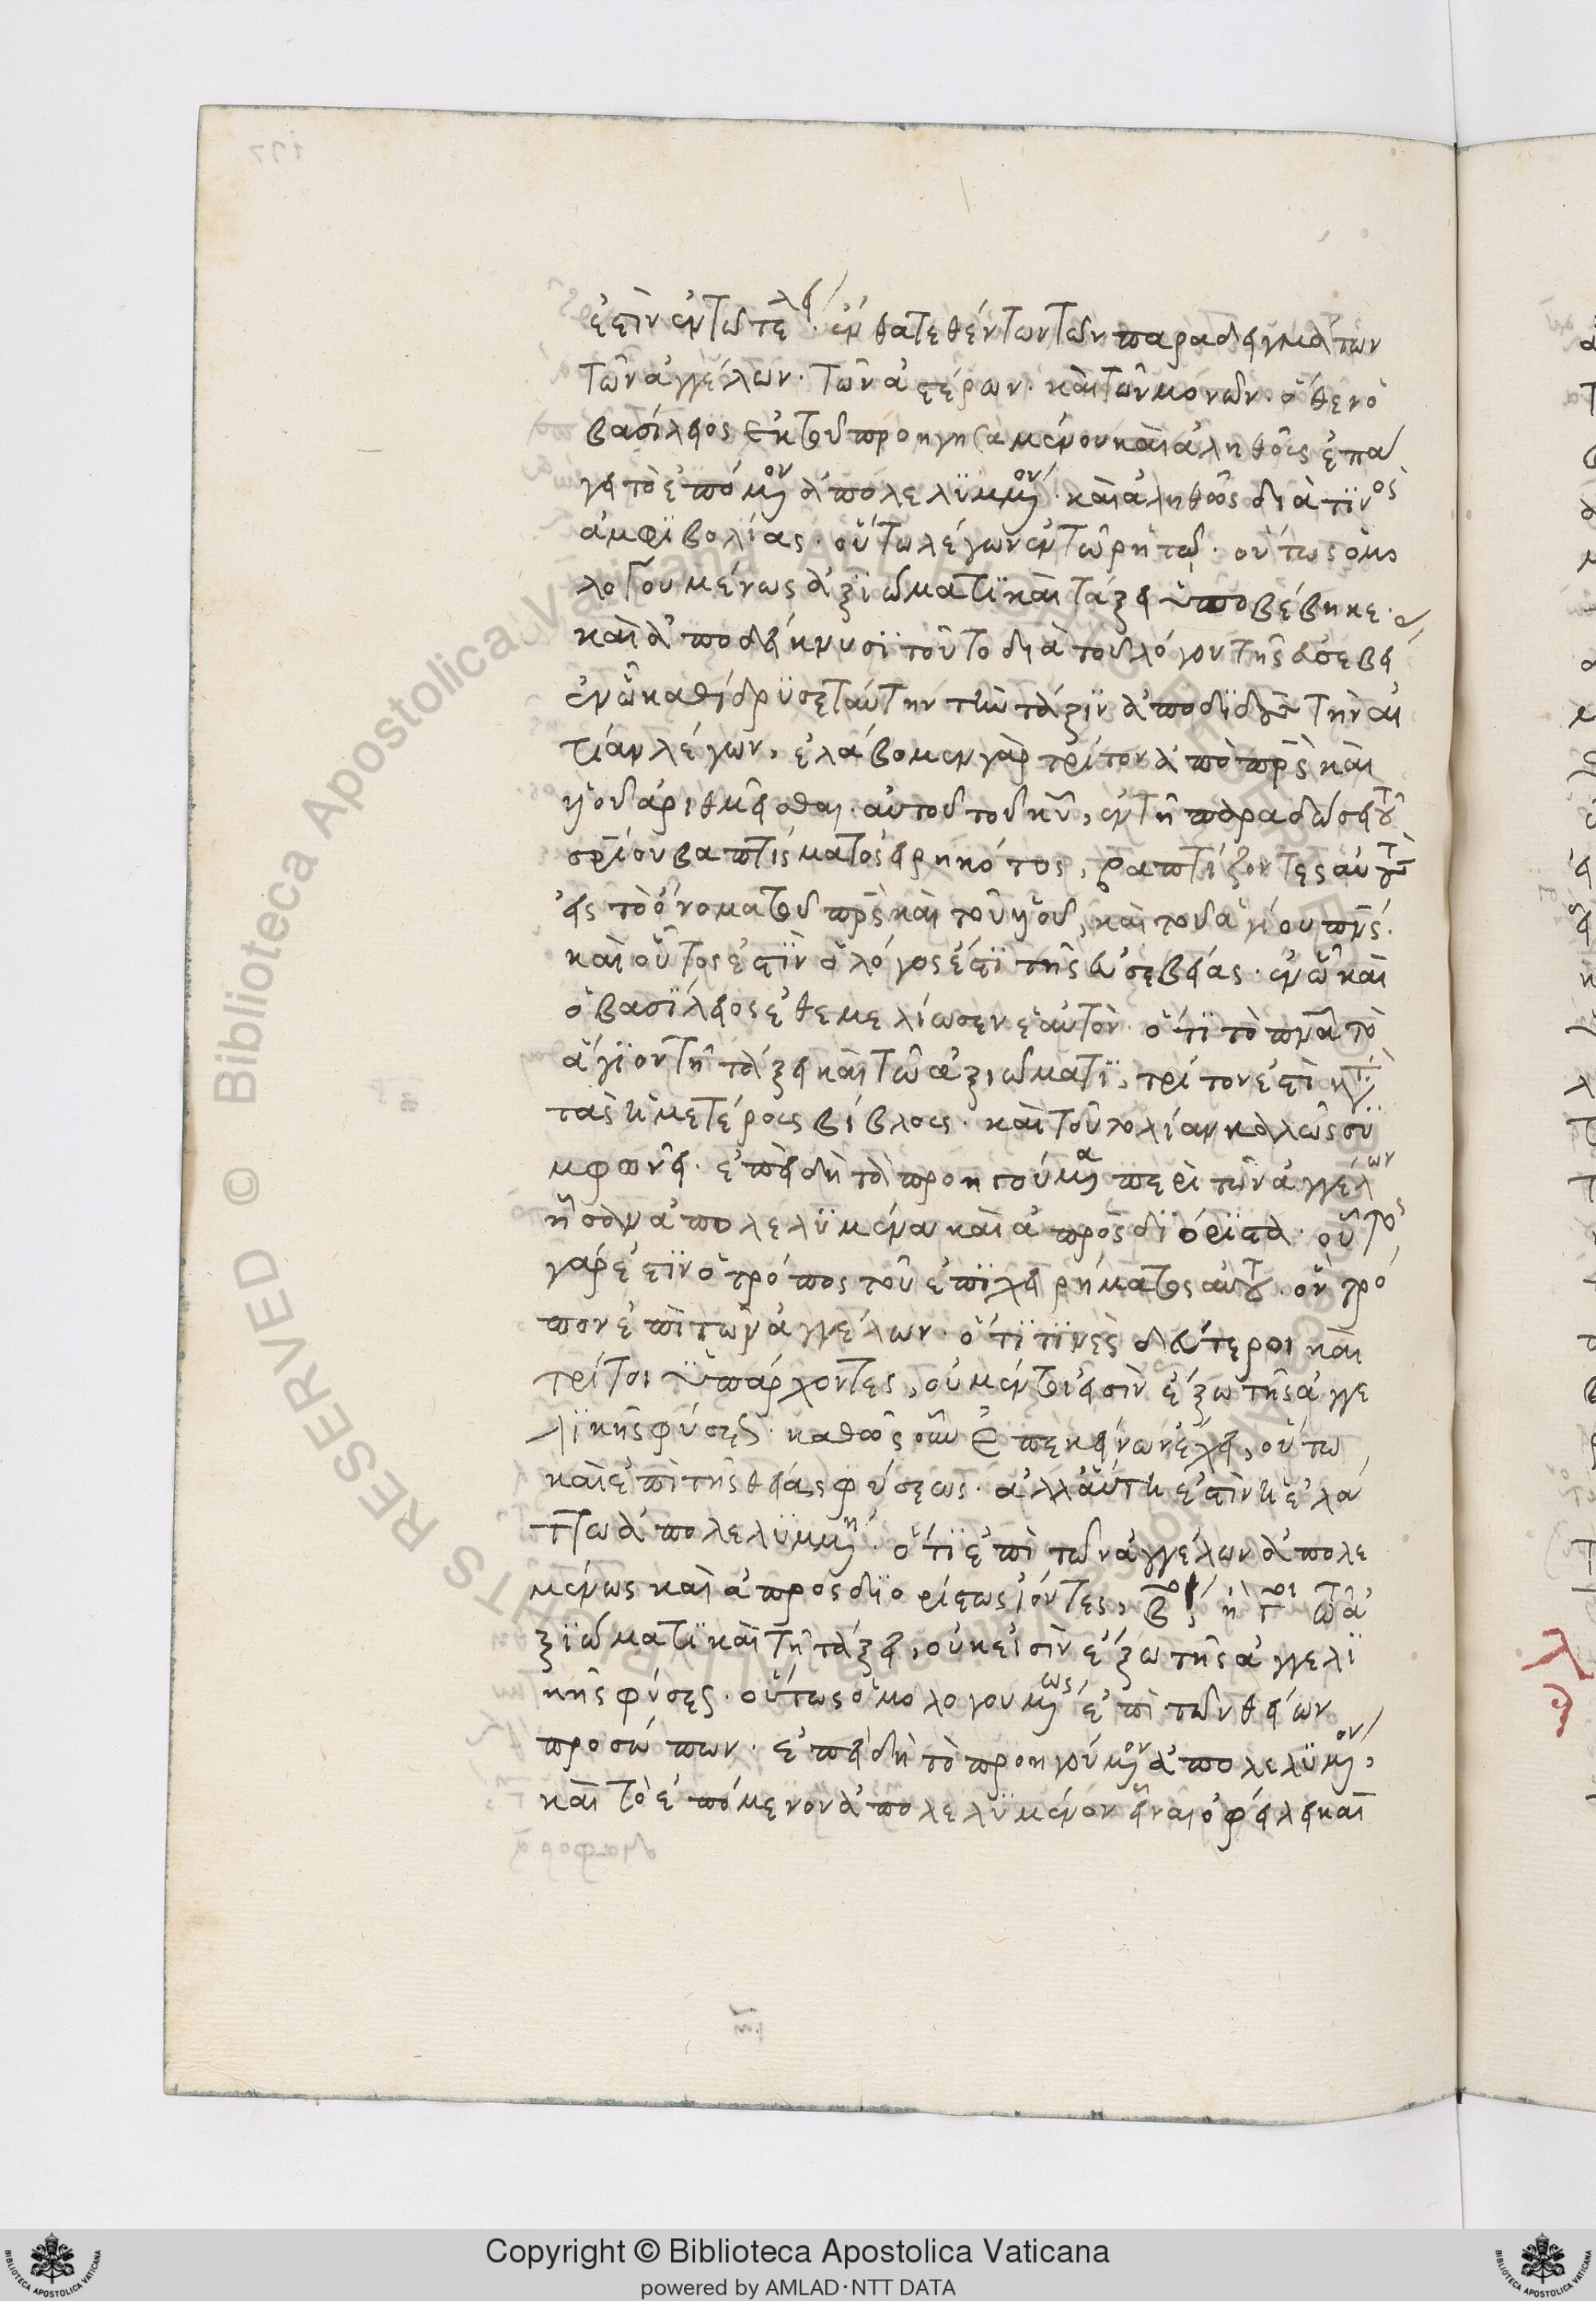 ἐστὶν ἐν τῶ τέλει. ἐνθα τεθέντων τῶν παραδειγμάτων
τῶν ἀγγέλων. τῶν ἀστέρων. καὶ τῶν μόνων. ὅθεν ὁ
βασίλειος ἐκ τοῦ προηγησαμένου καὶ ἀληθοῦς ἐπά
γει τὸ ἑπόμενον ἀπολελϋμμένον. καὶ ἀληθῶς διὰ τινὸς
ἀμφϊβολίας. οὕτω λέγων ἐν τῶ ῥητῶ. οὕτως ὁμο
λογουμένως ἀξϊώματϊ καὶ τάξει ὑποβέβηκε.
καὶ ἀποδείκνυσϊ τοῦτο διὰ τοῦ λόγου τῆς εὐσεβεί
ἐν ᾧ καθίδρϋσε ταύτην τὴν τάξϊν ἀποδϊδοὺς τὴν αἰ
τίαν λέγων, ἐλάβομεν γὰρ τρίτον ἀπὸ πρς καὶ
υἱοῦ ἀριθμεῖσθαι. αὐτοῦ τοῦ κυ, ἐν τῆ παραδώσει τοῦ
σρίου βαπτίσματος εἰρηκότος, βαπτίζοντες αὐτοὺς
εἰς τὸ ὄνομα τοῦ πρς καὶ τοῦ υἱοῦ, καὶ τοῦ ἁγίου πνς.
καὶ οὗτος ἐστὶν ὁ λόγος ἐστὶ τῆς εὐσεβείας. ἐν ᾧ καὶ
ὁ βασίλειος ἐθεμελίωσεν ἑαυτὸν. ὅτϊ τὸ πνα τὸ
ἅγϊον τῆ τάξει καὶ τῶ ἀξιώματϊ, τρίτον ἐστὶ κατὰ
τὰς ἡμετέρας βίβλους. καὶ τοῦ λίαν καλῶς συ
μφωνεῖ. ἐπειδὴ τὰ προηγούμενα περὶ τῶν ἀγγέλων
ἦσαν ἀπολελϋμένα καὶ ἀπροσδϊόριστα. οὗτος
γάρ ἐστϊν ὁ τρόπος τοῦ ἐπϊχειρήματος αὐτοῦ. ὃν τρό
πον ἐπὶ τῶν ἀγγέλων. ὅτϊ τϊνὲς δεύτεροι καὶ
τρίτοι ὑπάρχοντες, οὐ μέντοι εἰσὶν ἔξω τῆς ἀγγε
λϊκῆς φύσεως. καθῶς οὖν ἐπ ἐκείνων ἔχει, οὕτω
καὶ ἐπὶ τῆς θείας φύσεως. ἀλλ αὕτη ἐστὶν ἡ ἐλά
ττω ἀπολελϋμμένη. ὅτϊ ἐπὶ τῶν ἀγγέλων ἀπολε
μένως καὶ ἀπροσδϊορίστως ἰόντες, βοι, ἢ γοι τῶ ἀ
ξϊώματϊ καὶ τῆ τάξει, οὐκ εἰσὶν ἔξω τῆς ἀγγελϊ
κῆς φύσεως. οὕτως ὁμολογουμένως ἐπὶ τῶν θείων
προσώπων. ἐπειδὴ τὸ προηγούμενον ἀπολελϋμένον,
καὶ τὸ ἑπόμενον ἀπολελϋμένον εἶναι ὀφείλει καὶ